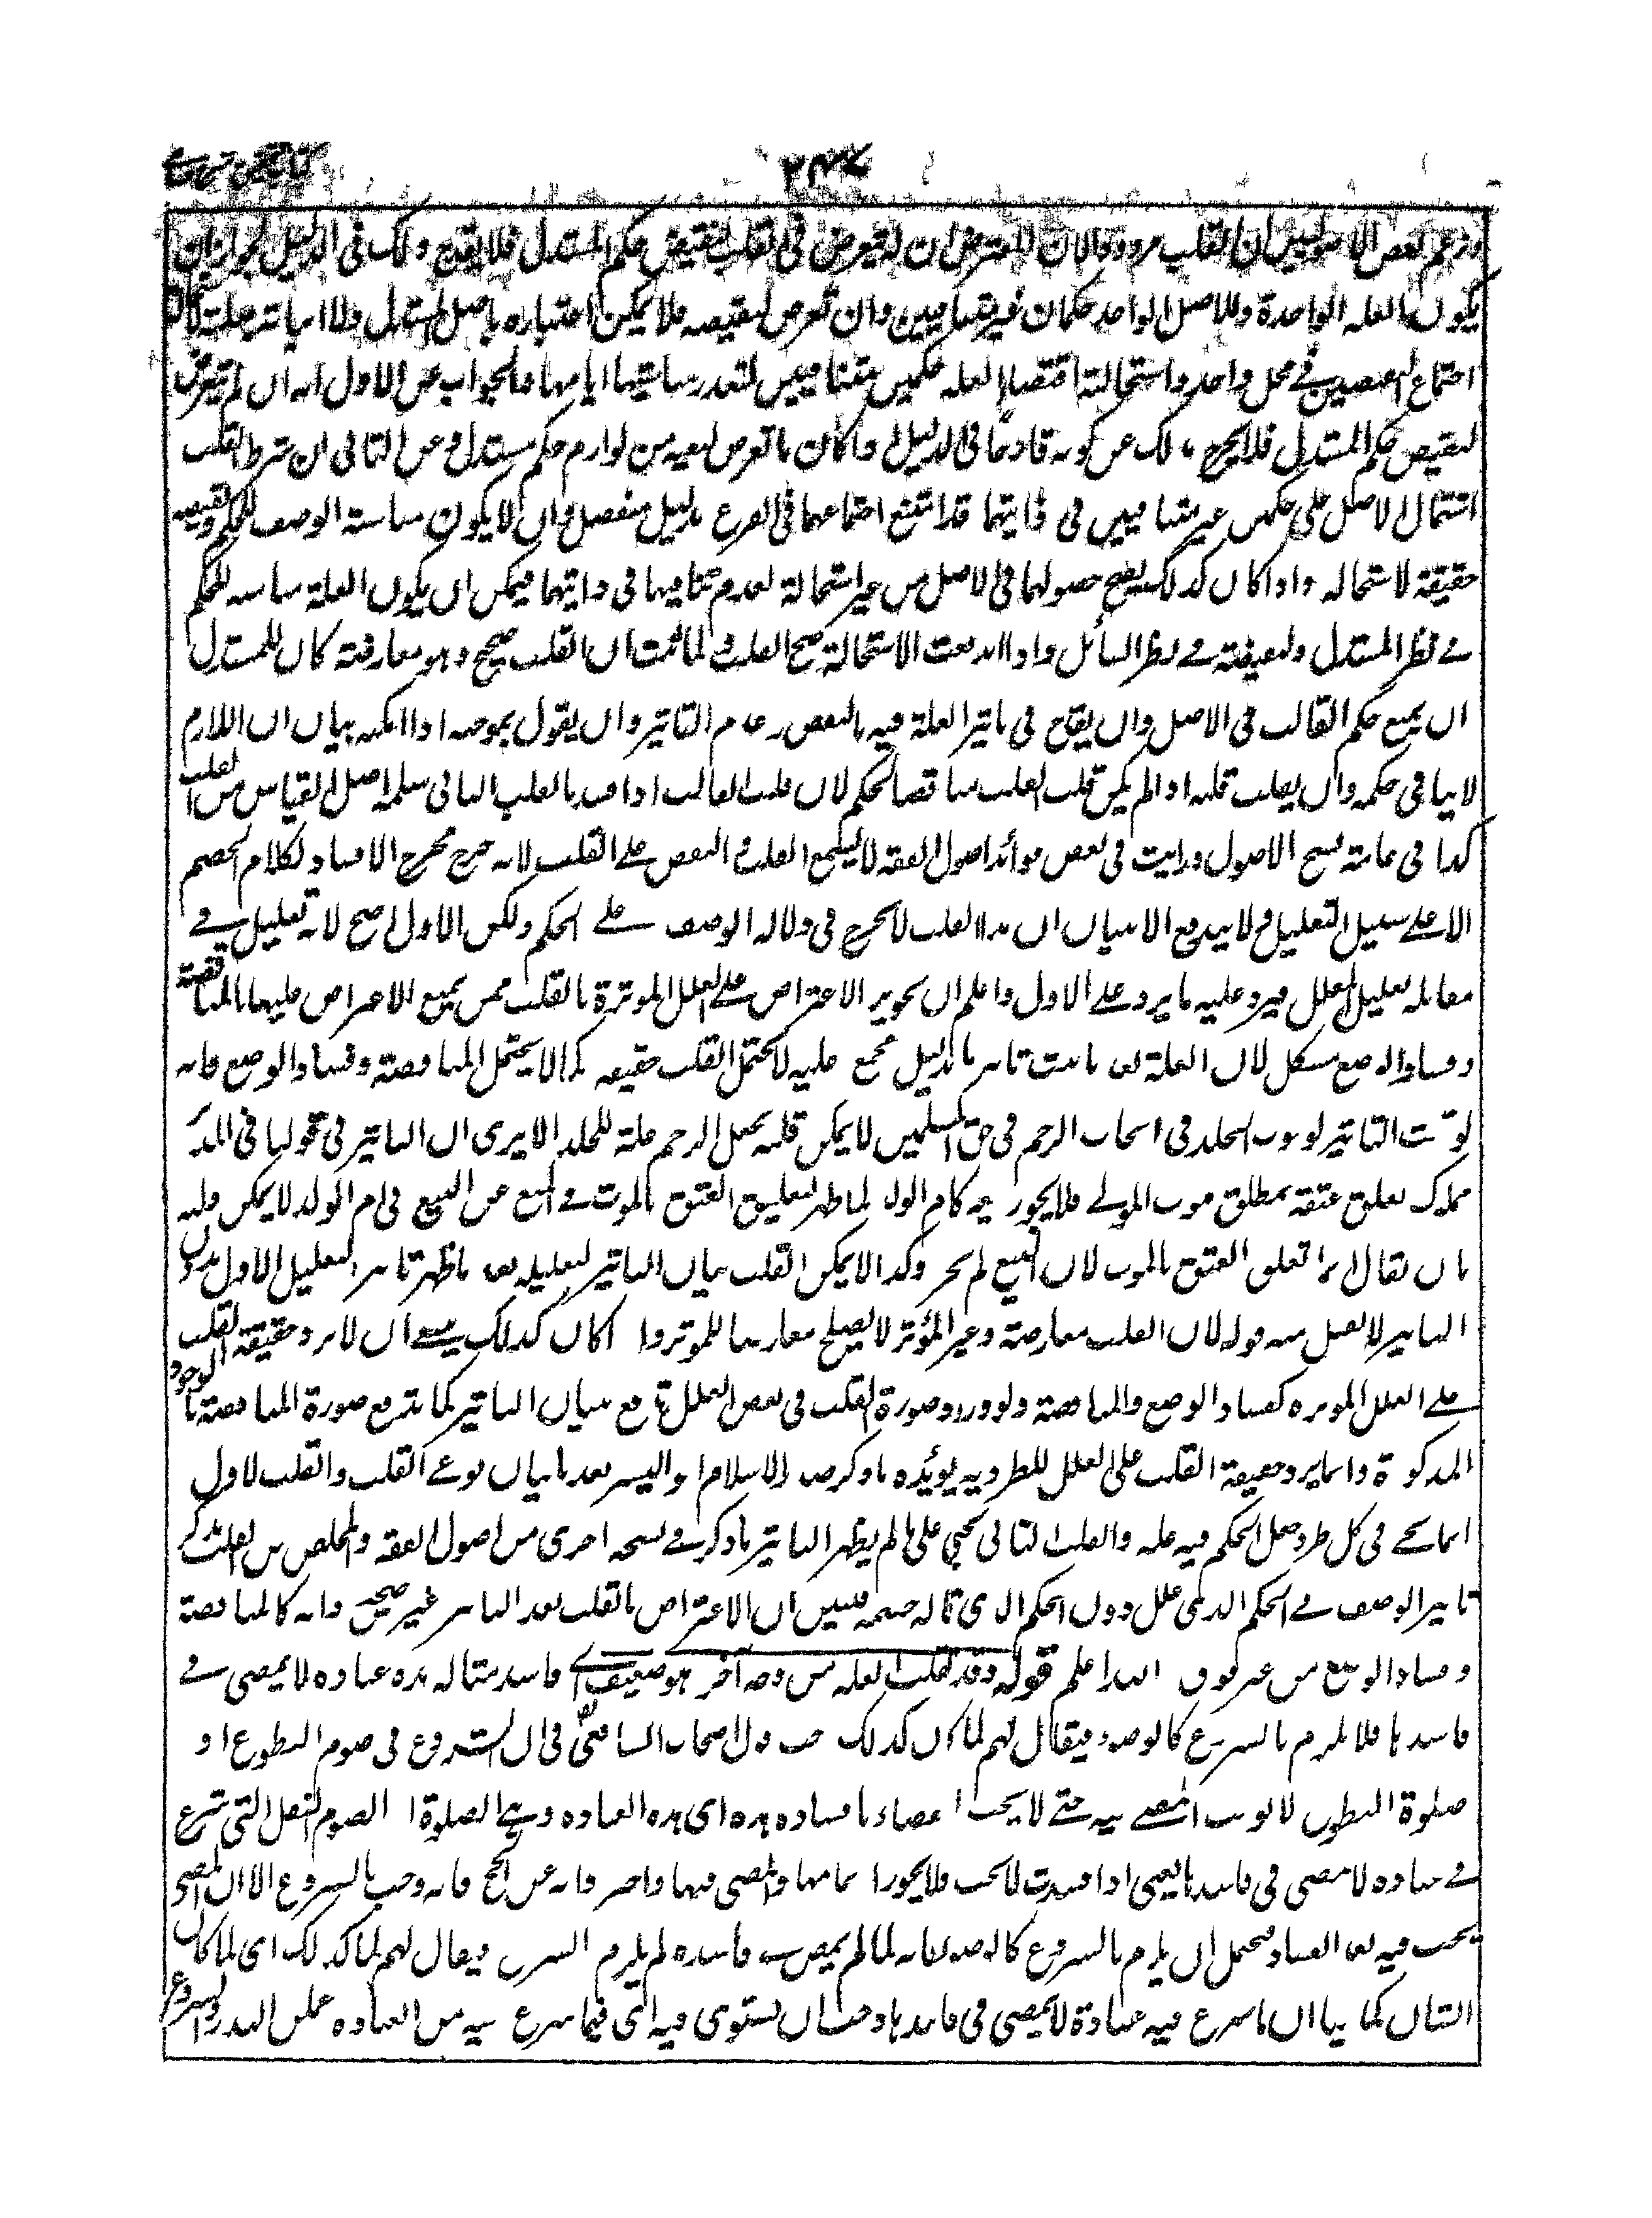 ٢٣٧
وزعم بعض الاصوليين ان القلب مردود لان المعترض ان لم يتعرض في القلب لنقيض حكم المستدل فلا يقدح ذلك في الدليل لجواز ان
يكون للعلة الواحدة وللاصل الواحد حكمان غير متنافيين وان تعرض لنقيضه فلا يمكن اعتباره باصل المستدل ولا اثبات علته لاستحالة
اجتماع النقيضين في محل واحد واستحالة اقتضاء العلة حكمين متنافيين لتعذر مناسبتها اياهما والجواب عن الاول انه ان لم يتعرض
لنقيض حكم المستدل فلا يخرج ذلك عن كونه قادحا في الدليل اذا كان ما تعرض لنفيه من لوازم حكم المستدل وعن الثاني ان شرط القلب
اشتمال الاصل على حكمين غير متنافيين في ذاتيهما قد امتنع اجتماعهما في الفرع بدليل منفصل وان لا يكون مناسبة الوصف للحكم ونقيضه
حقيقة لاستحالته واذا كان كذلك يصح حصولهما في الاصل من غير استحالة لعدم تنافيهما في ذاتيهما فيمكن ان يكون العلة مناسبة للحكم
في نظر المستدل ولنقيضه في نظر السائل واذا اندفعت الاستحالة صح القلب ولما ثبت ان القلب صحيح وهو معارضة كان للمستدل
ان يمنع حكم القالب في الاصل وان يقدح في تاثير العلة فيه بالنقض وعدم التاثير وان يقول بموجبه اذا امكنه بيان ان اللازم
لا ينافي حكمه وان يقلب قلبه اذا لم يكن قلب القلب مناقضا للحكم لان قلب القالب اذا فسد بالقلب الثاني سلم اصل القياس من القلب
كذا في عامة نسخ الاصول ورايت في بعض فوائد اصول الفقه لا يسمع القلب والنقض على القلب لانه خرج مخرج الافساد لكلام الخصم
الا على سبيل التعليل ولا يندفع الا ببيان ان هذا القلب لا يخرج في دلالة الوصف على الحكم ولكن الاول اصح لانه تعليل في
مقابلة تعليل المعلل فيرد عليه ما يرد على الاول واعلم ان تجويز الاعتراض على العلل المؤثرة بالقلب ممن يمنع الاعتراض عليها بالمناقضة
وفساد الوضع مشكل لان العلة بعد ما ثبت تاثيرها بدليل مجمع عليه لا يحتمل القلب حقيقة كما لا يحتمل المناقضة وفساد الوضع فانه
مملوك تعلق عتقه بمطلق موت المولى فلا يجوز بيعه كام الولد لما ظهر لتعليق العتق بالموت في المنع عن البيع في ام الولد لا يمكن قلبه
بان يقال انما تعلق العتق بالموت لان البيع لم يجز وكذا لا يمكن القلب ببيان التاثير لتعليله بعد ما ظهر تاثير التعليل الاول وبدون
التاثير لا يقبل منه قوله لان القلب معارضة وغير المؤثر لا يصلح معارضا للمؤثر واذا كان كذلك ينبغي ان لا يرد حقيقة القلب
على العلل المؤثرة كفساد الوضع والمناقضة ولو ورد صورة القلب في بعض العلل تدفع ببيان التاثير كما يدفع صورة المناقضة بالوجوه
المذكورة وانما يرد حقيقة القلب على العلل الطردية يؤيده ما ذكر صدر الاسلام ابو اليسر بعد ما بيان نوعي القلب والقلب الاول
انما يجيء في كل طرد جعل الحكم فيه علة والقلب الثاني يجيء على ما لم يظهر التاثير وذكر في نسخة اخرى من اصول الفقه والمخلص من القلب بذكر
تاثير الوصف في الحكم الذي علل دون الحكم الذي قاله خصمه فتبين ان الاعتراض بالقلب بعد التاثير غير صحيح وانه كالمناقضة
وفساد الوضع من غير فرق والله اعلم قوله وقد تقلب العلة من وجه آخر هو ضعيف اي فاسد مثاله هذه عبادة لا يمضي في
فاسدها فلا يلزم بالشروع كالوضوء فيقال لهم لما كان كذلك وجب قال اصحاب الشافعي في ان الشروع في صوم التطوع او
صلوة التطوع لا يوجب المضي فيه حتى لا يجب القضاء بافساده هذه اي هذه العبادة وهي الصلوة او الصوم النفل التي شرع
في عبادة لا يمضي في فاسدها يعني اذا فسدت لا يجب فلا يجوز اتمامها والمضي فيها واحترز به عن الحج فانه وجب بالشروع لان المضي
يجب فيه بعد الفساد فيحتمل ان يلزم بالشروع كالوضوء فانه لما لم يمض في فاسده لم يلزم بالشروع فيقال لهم لما كان كذلك اي لما كان
الشان كما بينا ان ما شرع فيه عبادة لا يمضي في فاسدها وجب ان يستوي فيه اي فيما شرع فيه من العبادة عمل النذر والشروع